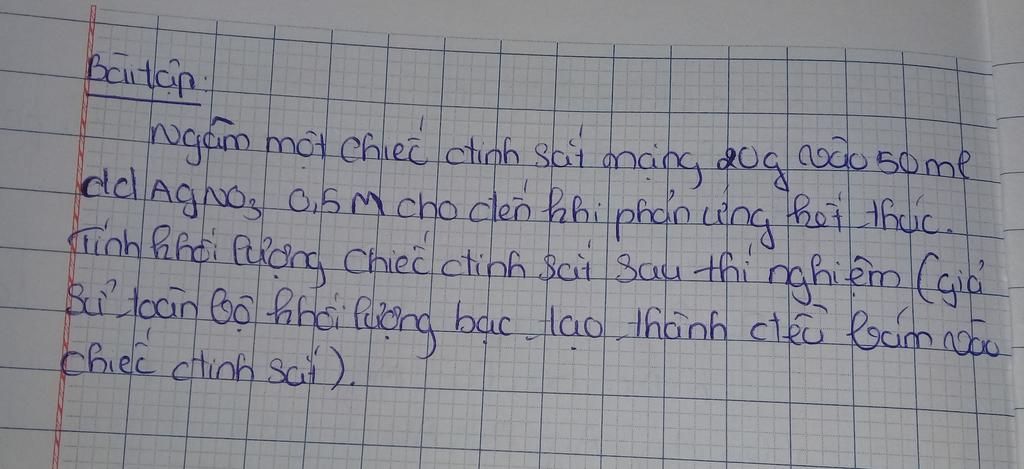 Bài tập:
Ngâm một chiếc đinh sắt nặng 20g vào 50ml
dd AgNO3 0,5M cho đến khi phản ứng kết thúc.
Tính khối lượng chiếc đinh sắt sau thí nghiệm (giả
sử toàn bộ khối lượng bạc tạo thành đều bám vào
chiếc đinh sắt).